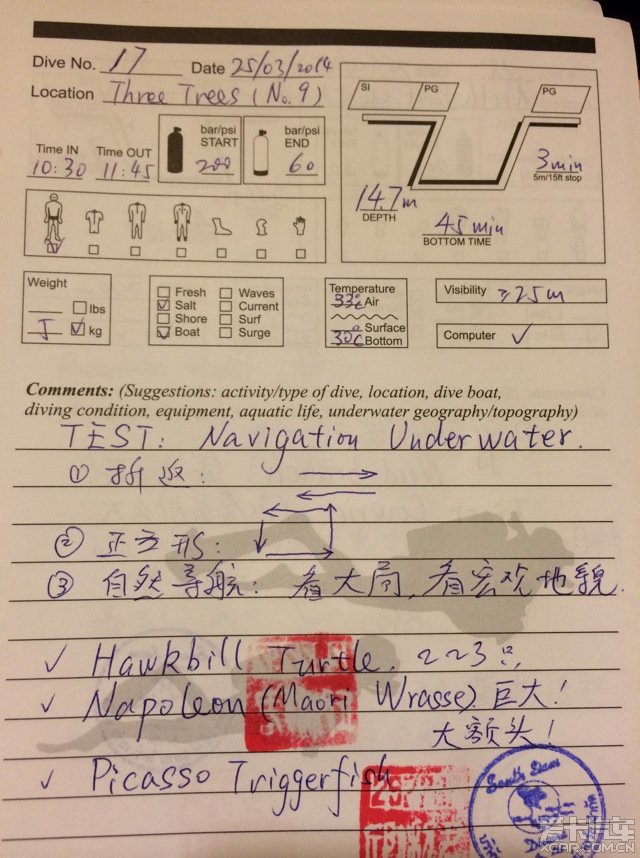 Dive No. 17 Date 25/03/2014
Location Three Trees (No. 9)
SI PG PG
Time IN Time OUT
10:30 11:45
bar/psi START 200
bar/psi END 60
3min
5m/15ft stop
14.7m
DEPTH
45min
BOTTOM TIME
Weight
lbs
5 kg
Fresh Waves
Salt Current
Shore Surf
Boat Surge
Temperature
33℃ Air
Surface
30℃ Bottom
Visibility ≥25m
Computer ✓
Comments: (Suggestions: activity/type of dive, location, dive boat,
diving condition, equipment, aquatic life, underwater geography/topography)
TEST: Navigation Underwater.
① 折返:
② 正方形:
③ 自然导航: 看大局, 看宏观地貌.
✓ Hawkbill Turtle. 2~3只
✓ Napoleon (Maori Wrasse) 巨大!
大额头!
✓ Picasso Triggerfish
South Siam
爱卡汽车
XCAR.COM.CN